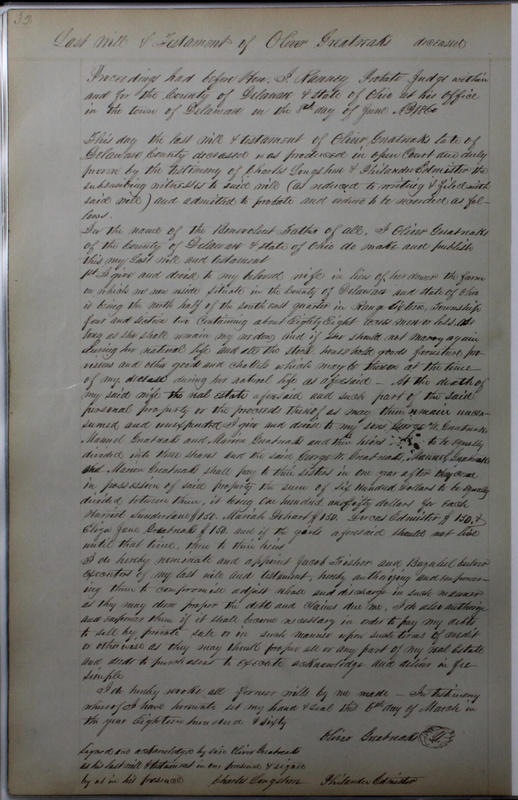 32
Last Will & Testament of Oliver Greatreaks deceased
Proceedings had before Hon. J. Ranney Probate Judge within
and for the County of Delaware & State of Ohio at his office
in the town of Delaware on the 8th day of June AD 1860
This day the last will & testament of Oliver Greatreaks late of
Delaware County deceased was produced in open Court and duly
proven by the testimony of Charles Longshore & Philander Edmister the
subscribing witnesses to said will (as reduced to writing & filed with
said will) and admitted to probate and ordered to be recorded as fol-
lows.
In the name of the Benevolent Father of all, I Oliver Greatreaks
of the County of Delaware & state of Ohio do make and publish
this my Last will and testament
1st I give and devise to my beloved wife in lieu of her dower the farm
on which we now reside situate in the County of Delaware and State of Ohio
it being the north half of the south east quarter in Range Sixteen, Township
four and section two containing about Eighty Eight acres more or less, as
long as she shall remain my widow and if she should not marry again
during her natural life and all the stock, household goods furniture, pro-
visions and other goods and chattels which may be thereon at the time
of my decease during her natural life as aforesaid – At the death of
my said wife the real estate aforesaid and such part of the said
personal property or the proceeds thereof as may then remain uncon-
sumed and unexpended I give and devise to my sons George W. Greatreaks
Manuel Greatreaks and Marion Greatreaks and their heirs to be equally
divided into three shares and the said George W. Greatreaks, Manuel Greatreaks
and Marion Greatreaks shall pay to their sisters in one year after they are
in possession of said property the sum of Six Hundred Dollars to be equally
divided between them, it being One hundred and fifty dollars for each
Harriet Sunderland $150. Mariah Gohart $150. Lucas Edmister $150, &
Eliza Jane Greatreaks $150 and if the girls aforesaid should not live
until that time, then to their heirs
I do hereby nominate and appoint Jacob Fisher and Bazaleel
executors of my last will and testament, hereby authorizing and empower-
ing them to compromise adjust release and discharge in such manner
as they may deem proper the debts and claims due me, I do also authorize
and empower them if it shall become necessary in order to pay my debts
to sell by private sale or in such manner upon such terms of credit
or otherwise as they may think proper all or any part of my real Estate
and deeds to purchasers to execute acknowledge and deliver in fee
simple
I do hereby revoke all former wills by me made – In testimony
whereof I have hereunto set my hand & seal this 6th day of March in
the year Eighteen hundred & sixty
Oliver Greatreaks
Signed and acknowledged by said Oliver Greatreaks
as his last will & testament in our presence & signed
by us in his presence Charles Longshore Philander Edmister